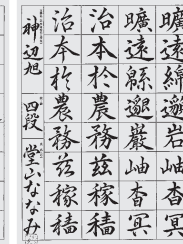 曠遠綿邈岩岫杳冥
曠遠緜邈巌岫杳冥
治本於農務茲稼穡
治夲於農務茲稼穡
神辺旭 四段 堂山ななみ